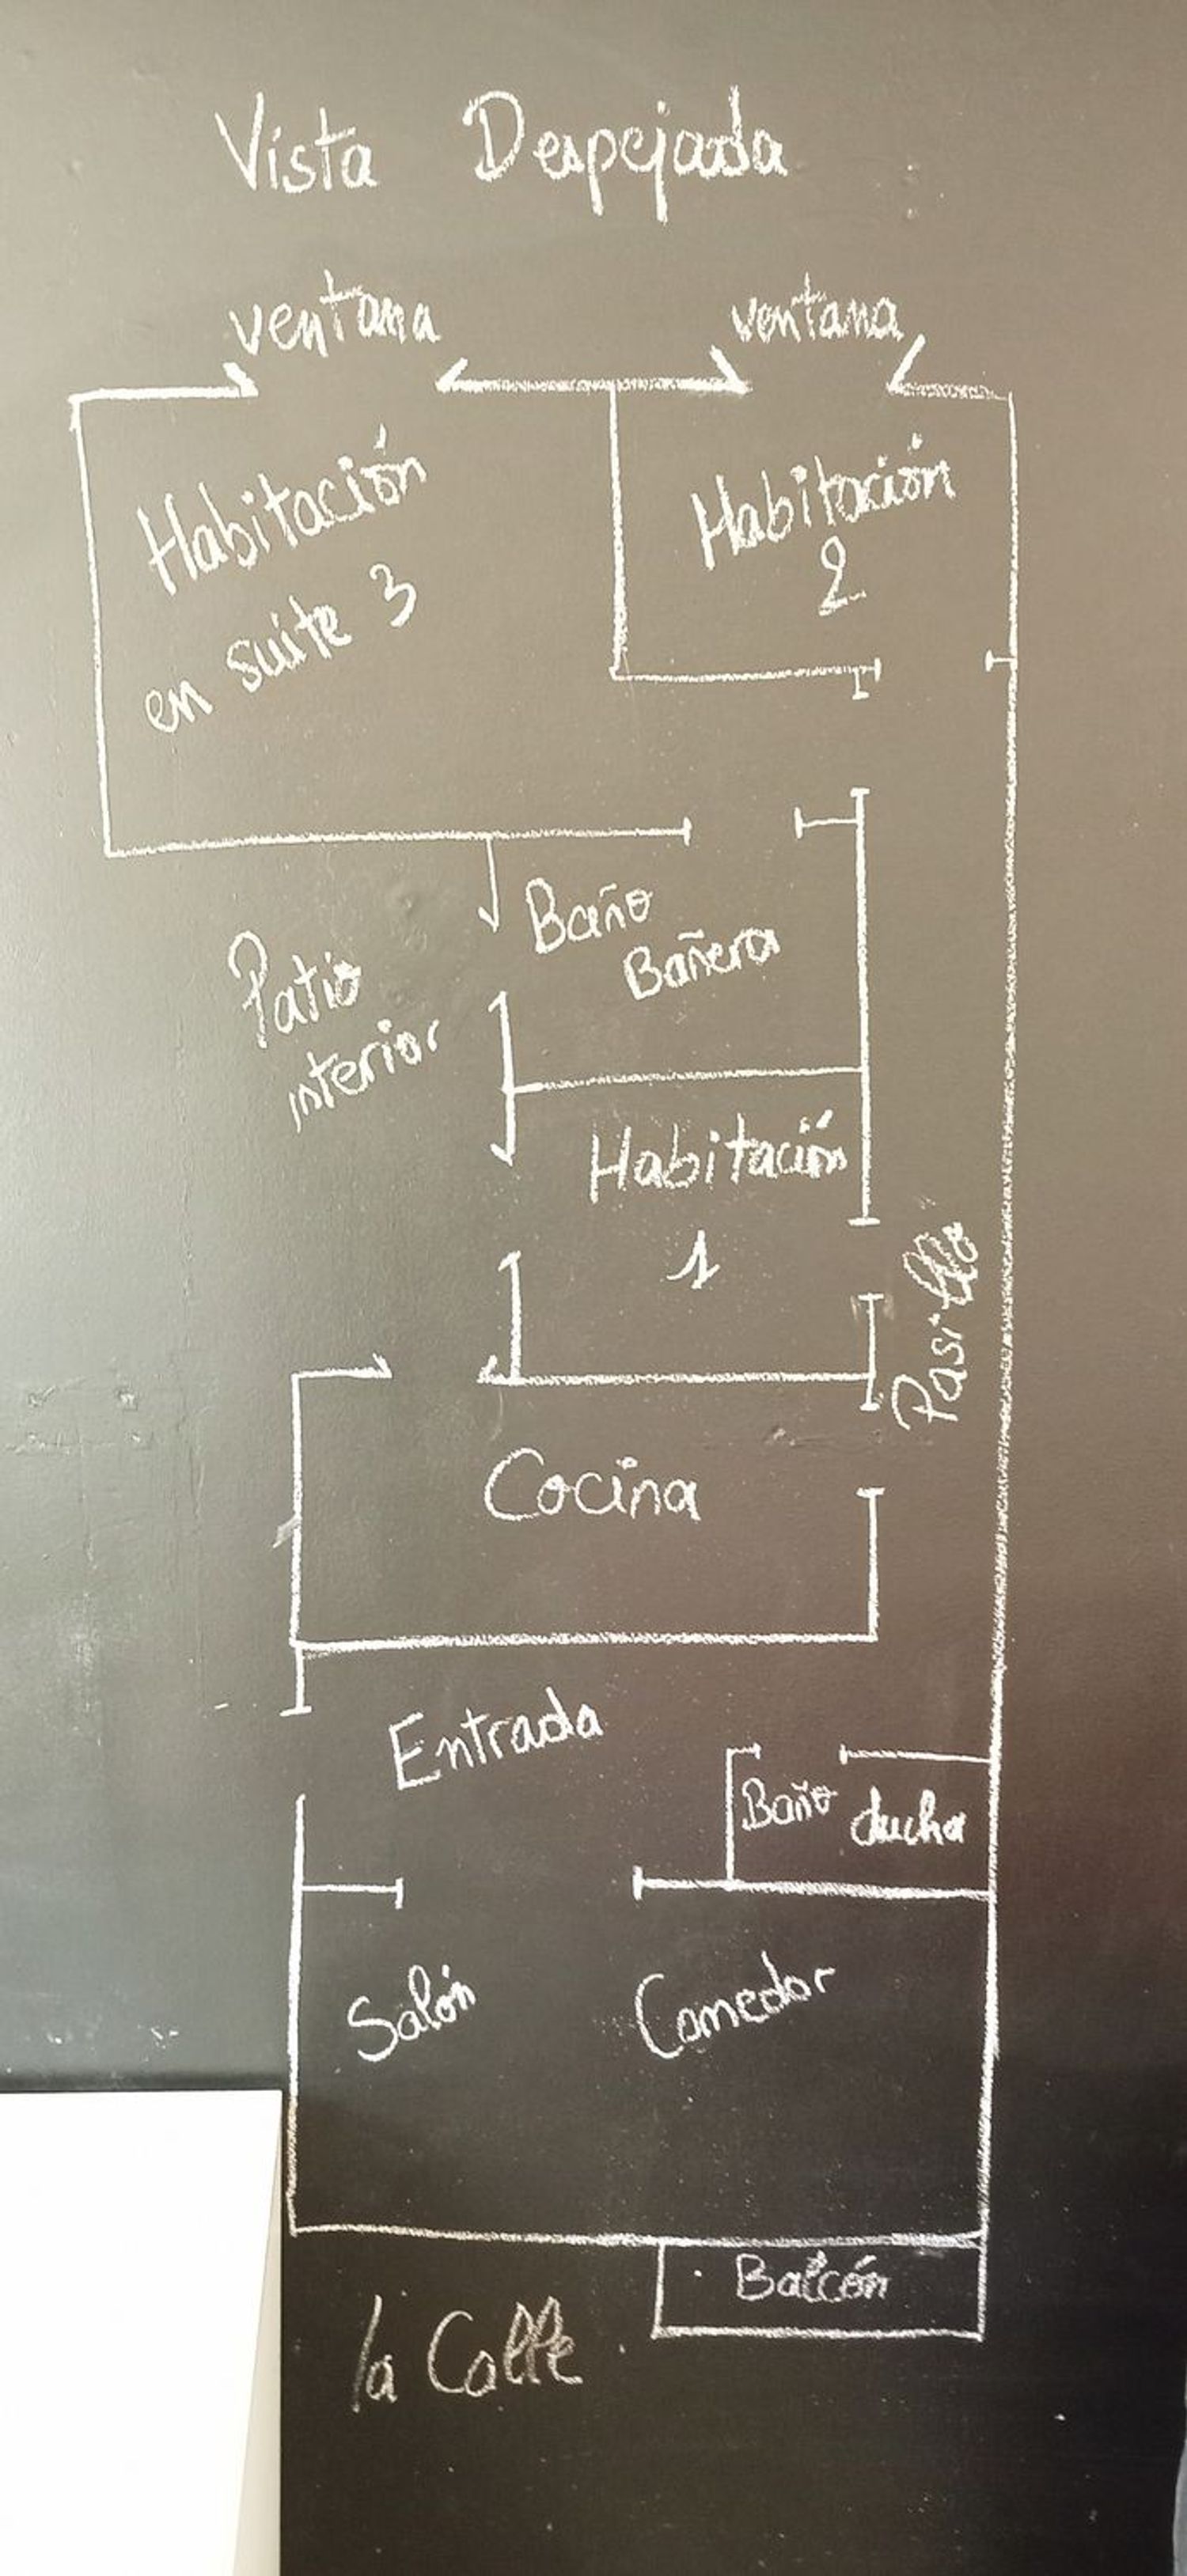 Vista Despejada
ventana
ventana
Habitación
en suite 3
Habitación
2
Baño
Bañera
Patio
interior
Habitación
1
Pasillo
Cocina
Entrada
Baño ducha
Salón
Comedor
Balcón
la Calle